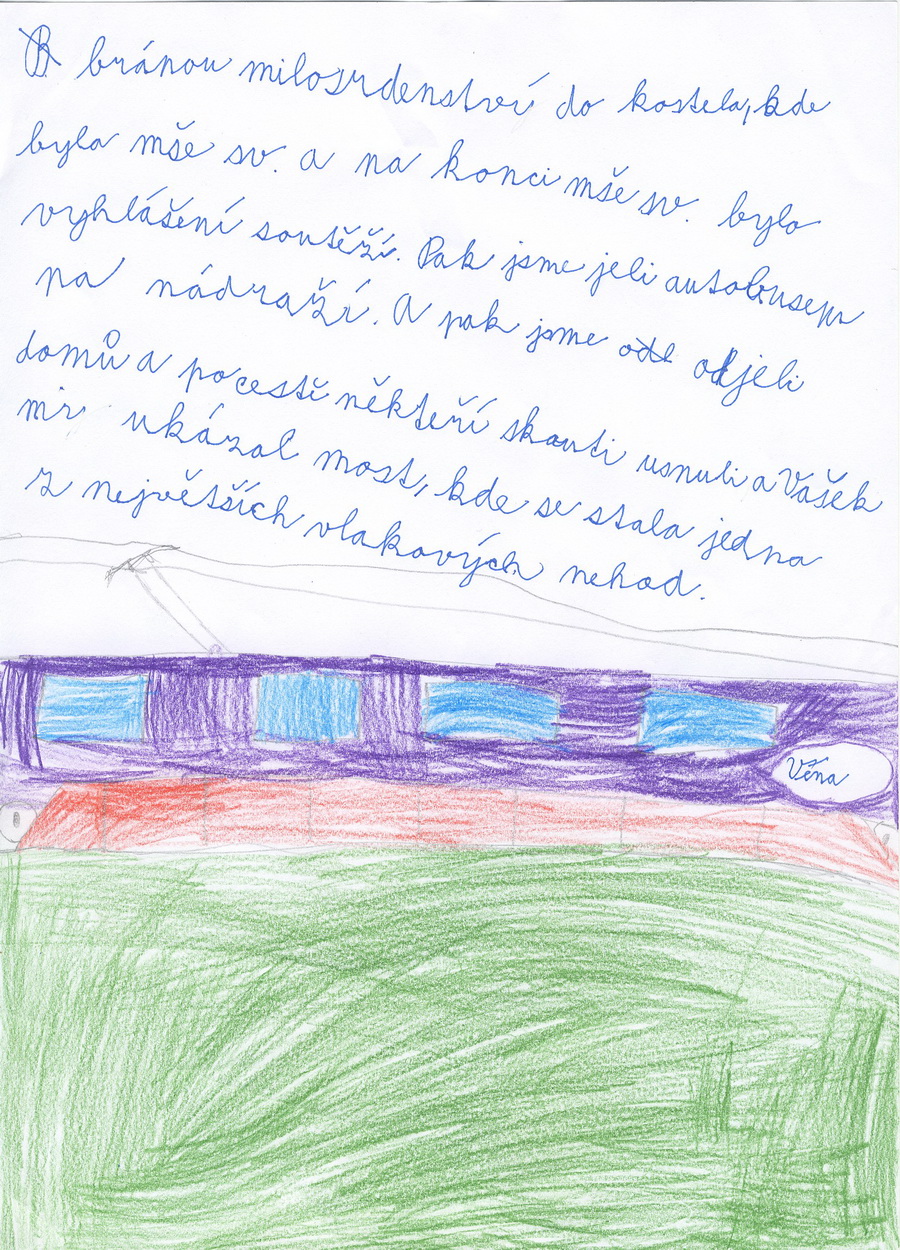 bránou milosrdenství do kostela, kde
byla mše sv. a na konci mše sv. bylo
vyhlášení soutěží. Pak jsme jeli autobusem
na nádraží. A pak jsme odjeli
domů a pocestě někteří skauti usnuli a Vašek
mi ukázal most, kde se stala jedna
z největších vlakových nehod.
Věna